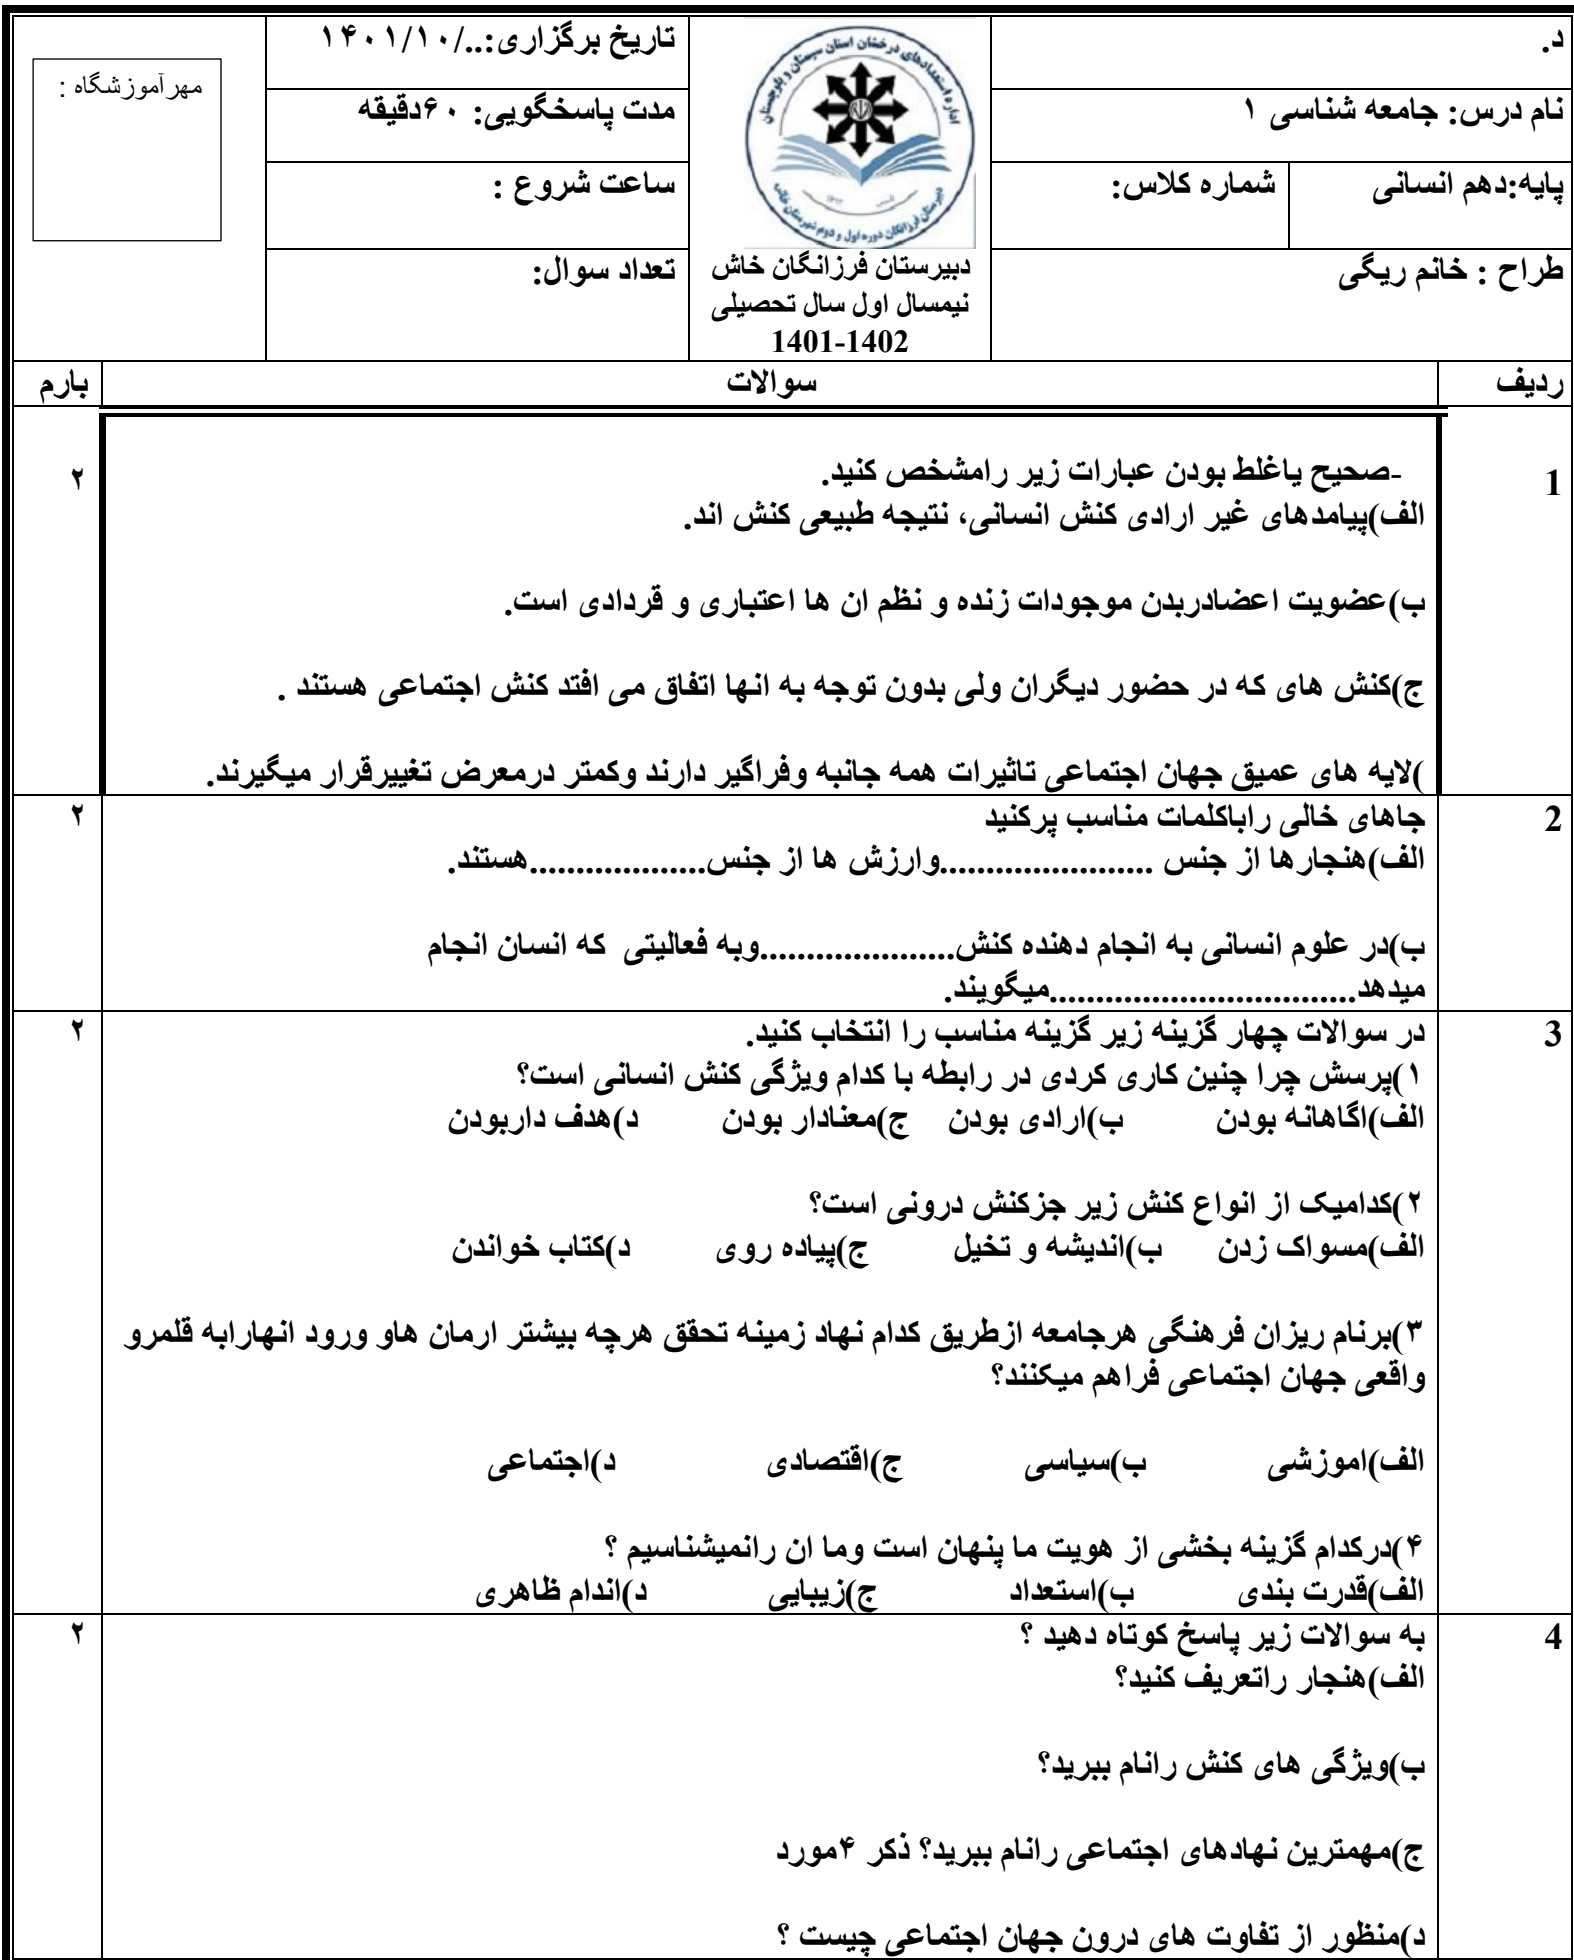 د.
نام درس: جامعه شناسی ۱
پایه:دهم انسانی
شماره کلاس:
طراح : خانم ریگی
اداره استعدادهای درخشان استان سیستان و بلوچستان
دبیرستان فرزانگان دوره اول و دوم شهرستان خاش
دبیرستان فرزانگان خاش
نیمسال اول سال تحصیلی
1401-1402
تاریخ برگزاری:../۱۴۰۱/۱۰
مدت پاسخگویی: ۶۰دقیقه
ساعت شروع :
تعداد سوال:
مهرآموزشگاه :
ردیف
سوالات
بارم
1
۲
-صحیح یاغلط بودن عبارات زیر رامشخص کنید.
الف)پیامدهای غیر ارادی کنش انسانی، نتیجه طبیعی کنش اند.
ب)عضویت اعضادربدن موجودات زنده و نظم ان ها اعتباری و قردادی است.
ج)کنش های که در حضور دیگران ولی بدون توجه به انها اتفاق می افتد کنش اجتماعی هستند .
)لایه های عمیق جهان اجتماعی تاثیرات همه جانبه وفراگیر دارند وکمتر درمعرض تغییرقرار میگیرند.
2
۲
جاهای خالی راباکلمات مناسب پرکنید
الف)هنجارها از جنس .......................وارزش ها از جنس...................هستند.
ب)در علوم انسانی به انجام دهنده کنش.....................وبه فعالیتی که انسان انجام
میدهد.................................میگویند.
3
۲
در سوالات چهار گزینه زیر گزینه مناسب را انتخاب کنید.
۱)پرسش چرا چنین کاری کردی در رابطه با کدام ویژگی کنش انسانی است؟
الف)اگاهانه بودن ب)ارادی بودن ج)معنادار بودن د)هدف داربودن
۲)کدامیک از انواع کنش زیر جزکنش درونی است؟
الف)مسواک زدن ب)اندیشه و تخیل ج)پیاده روی د)کتاب خواندن
۳)برنام ریزان فرهنگی هرجامعه ازطریق کدام نهاد زمینه تحقق هرچه بیشتر ارمان هاو ورود انهارابه قلمرو
واقعی جهان اجتماعی فراهم میکنند؟
الف)اموزشی ب)سیاسی ج)اقتصادی د)اجتماعی
۴)درکدام گزینه بخشی از هویت ما پنهان است وما ان رانمیشناسیم ؟
الف)قدرت بندی ب)استعداد ج)زیبایی د)اندام ظاهری
4
۲
به سوالات زیر پاسخ کوتاه دهید ؟
الف)هنجار راتعریف کنید؟
ب)ویژگی های کنش رانام ببرید؟
ج)مهمترین نهادهای اجتماعی رانام ببرید؟ ذکر ۴مورد
د)منظور از تفاوت های درون جهان اجتماعی چیست ؟